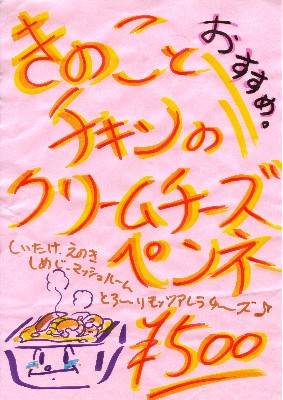 おすすめ。
きのこと
チキンの
クリームチーズ
ペンネ
しいたけ、えのき
しめじ・マッシュルーム
とろ〜りモッツアレラチーズ♪
¥500